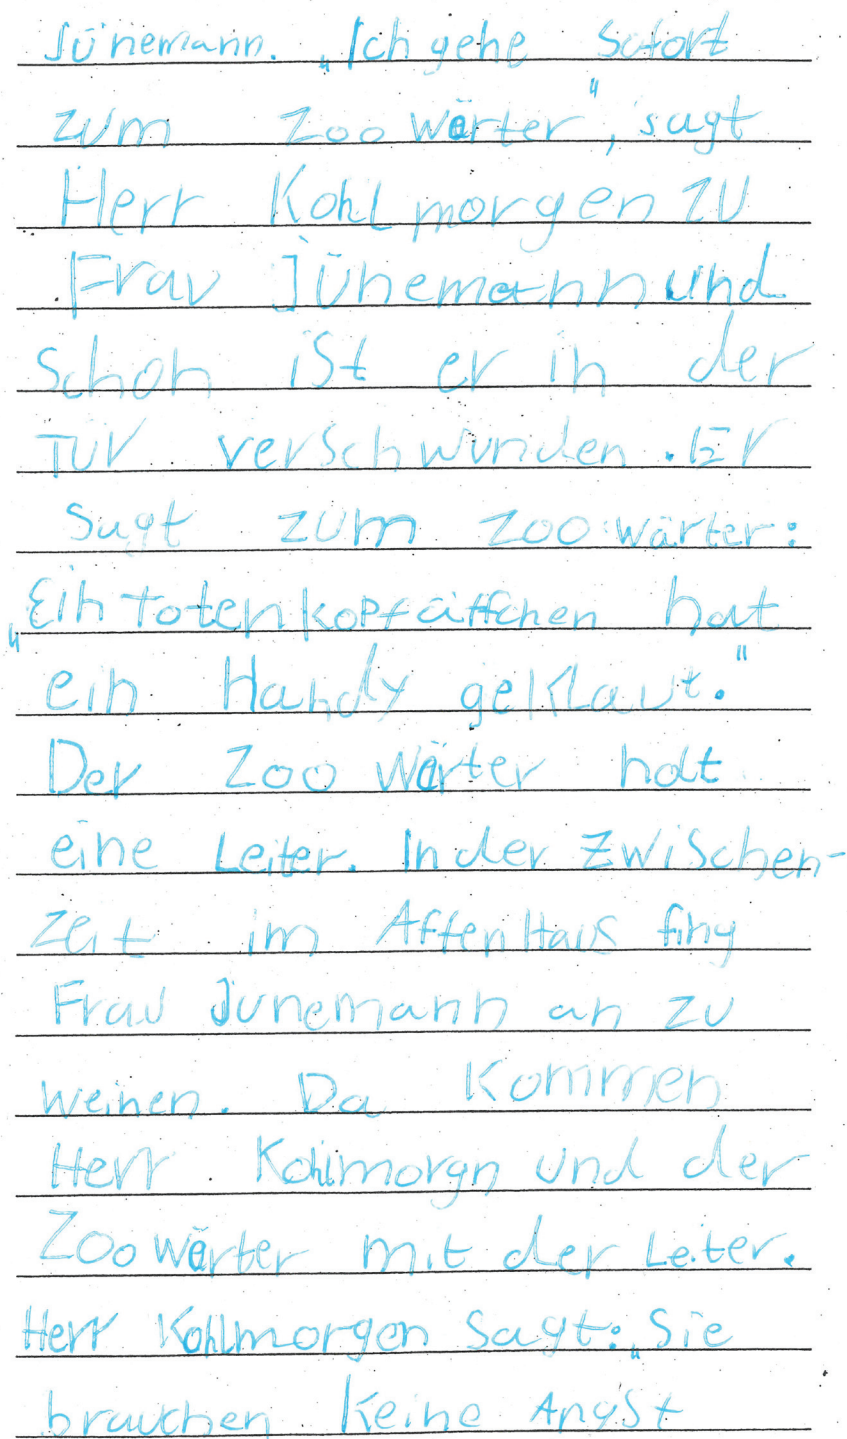 Jünemann. „Ich gehe sofort
zum Zoo wärter", sagt
Herr Kohlmorgen zu
Frau Jünemann und
schon ist er in der
TÜr verschwunden. Er
sagt zum Zoo wärter:
„Ein Totenkopfäffchen hat
ein Handy geklaut."
Der Zoo Wärter holt
eine Leiter. In der Zwischen-
zeit im AffenHaus fing
Frau Junemann an zu
weinen. Da Kommen
Herr Kohlmorgn und der
Zoo Wärter mit der Leiter.
Herr Kohlmorgen sagt: „Sie
brauchen Keine Angst